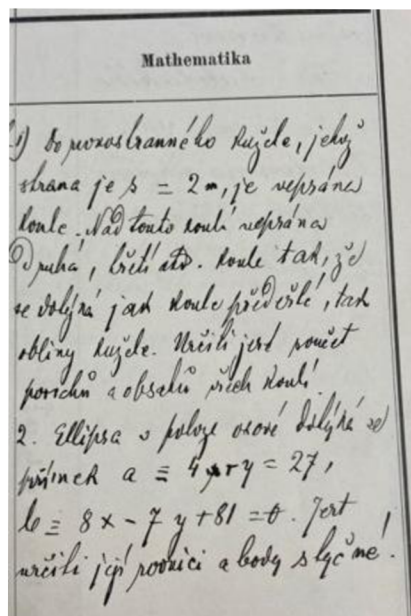 Mathematika
1) Do rovnostranného kužele, jehož
strana je s = 2 m, je vepsána
koule. Nad touto koulí vepsána
druhá, třetí atd. koule tak, že
se dotýká jak koule předešlé, tak
obliny kužele. Určiti jest součet
povrchů a obsahů všech koulí
2. Ellipsa v poloze osové dotýká se
přímek a ≡ 4x + y = 27,
b ≡ 8x - 7y + 81 = 0. Jest
určiti její rovnici a body styčné.